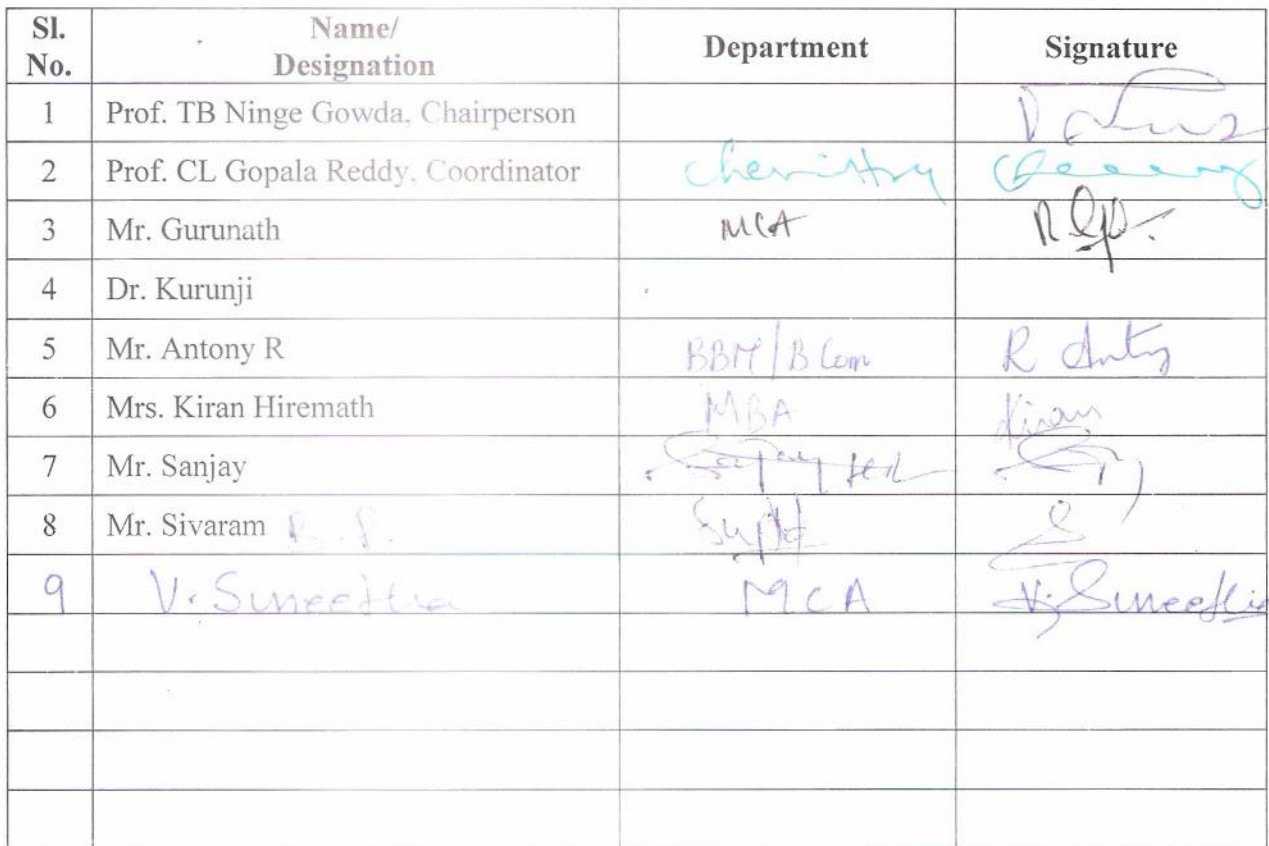 Sl. No. Name/ Designation Department Signature
1 Prof. TB Ninge Gowda, Chairperson
2 Prof. CL Gopala Reddy, Coordinator Chemistry
3 Mr. Gurunath MCA
4 Dr. Kurunji
5 Mr. Antony R BBM/B Com R Antony
6 Mrs. Kiran Hiremath MBA Kiran
7 Mr. Sanjay
8 Mr. Sivaram Supdt
9 V. Suneetha MCA V. Suneetha